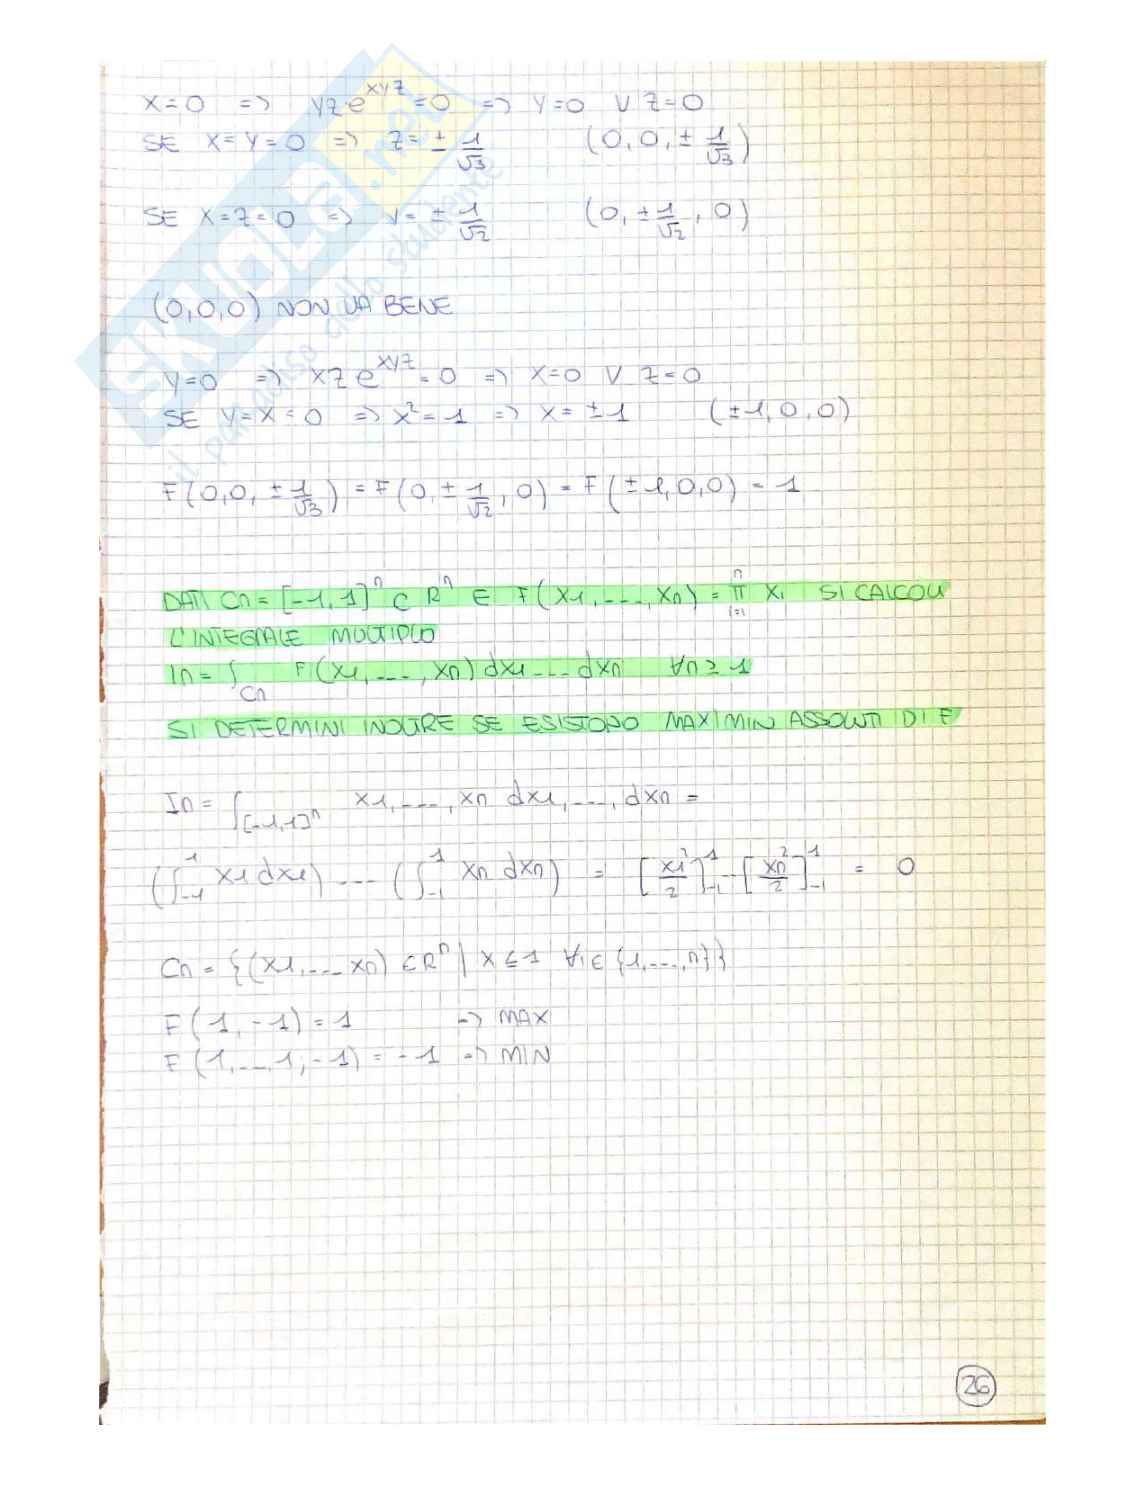 X=0 => YZ e^XYZ = 0 => Y=0 V Z=0
SE X=Y=0 => Z= ± 1/√3 (0,0,± 1/√3)
SE X=Z=0 => Y= ± 1/√2 (0,± 1/√2, 0)
(0,0,0) NON VA BENE
Y=0 => XZ e^XYZ = 0 => X=0 V Z=0
SE Y=X=0 => X²=1 => X= ±1 (±1,0,0)
F(0,0,± 1/√3) = F(0,± 1/√2, 0) = F(±1,0,0) = 1
DATI Cn = [-1,1]^n C R^n E F(X1,----,Xn) = π_{i=1}^n Xi SI CALCOLI
L'INTEGRALE MULTIPLO
In = ∫_Cn F(X1,---,Xn) dX1---dXn ∀n≥1
SI DETERMINI INOLTRE SE ESISTONO MAX/MIN ASSOLUTI DI F
In = ∫_[-1,1]^n X1,----,Xn dX1,---,dXn =
(∫_-1^1 X1 dX1)----(∫_-1^1 Xn dXn) = [X1²/2]_-1^1--[Xn²/2]_-1^1 = 0
Cn = {(X1,---Xn) ∈R^n | X≤1 ∀i∈{1,---,n}}
F(1,-1)=1 => MAX
F(1,---,1,-1)=-1 => MIN
26
SKUOLA.net
il paradiso dello studente